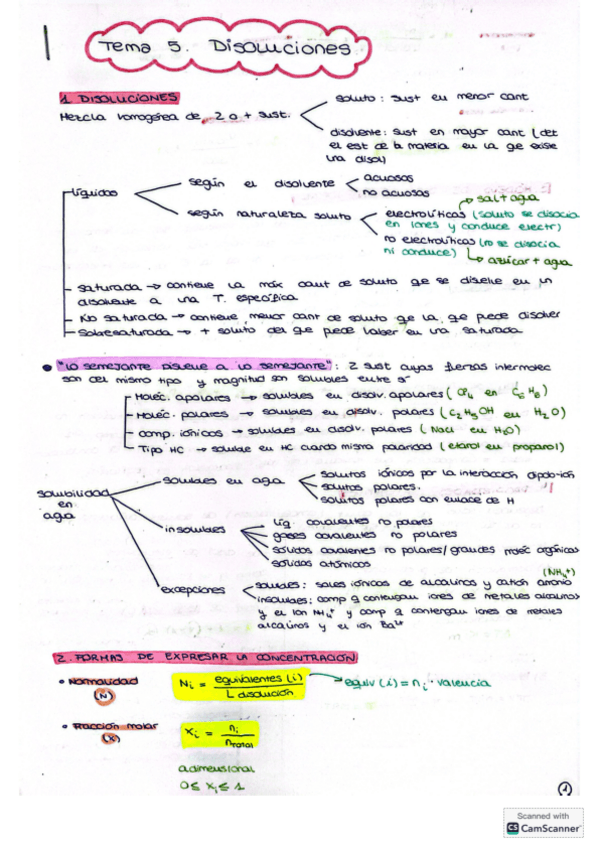 Tema 5. Disoluciones
1. DISOLUCIONES
Mezcla homogénea de 2 o + sust.
soluto: sust en menor cant
disolvente: sust en mayor cant (det
el est de la materia en la qe existe
una disol)
líquidas
según el disolvente
acuosas
no acuosas
sal + agua
según naturaleza soluto
electrolíticas (soluto se disocia
en iones y conduce electr)
no electrolíticas (no se disocia
ni conduce)
azúcar + agua
- saturada → contiene la máx cant de soluto qe se disuelve en un
disolvente a una T. específica
- No saturada → contiene menor cant de soluto qe la qe puede disolver
- Sobresaturada → + soluto del qe puede haber en una saturada
"Lo semejante disuelve a lo semejante": 2 sust cuyas fuerzas intermolec
son del mismo tipo y magnitud son solubles entre sí
Moléc. apolares → solubles en disolv. apolares (CF4 en C6H6)
Moléc. polares → solubles en disolv. polares (C2H5OH en H2O)
comp. iónicos → solubles en disolv. polares (NaCl en H2O)
Tipo HC → soluble en HC cuando misma polaridad (etanol en propanol)
solubilidad
en
agua
solubles en agua
solutos iónicos por la interacción dipolo-ión
solutos polares.
solutos polares con enlace de H
insolubles
líq. covalentes no polares
gases covalentes no polares
sólidos covalentes no polares/grandes moléc orgánicas
sólidos atómicos
excepciones
(NH4+)
solubles: sales iónicos de alcalinos y catión amonio
insolubles: comp q contengan iones de metales alcalinos
y el ion NH4+ y comp q contengan iones de metales
alcalinos y el ión Ba2+
2. FORMAS DE EXPRESAR LA CONCENTRACIÓN
• Normalidad
(N)
Ni = equivalentes (i) / L disolución
equiv (i) = ni · valencia
• Fracción molar
(X)
xi = ni / ntotal
adimensional
0 ≤ xi ≤ 1
1
Scanned with
CS CamScanner